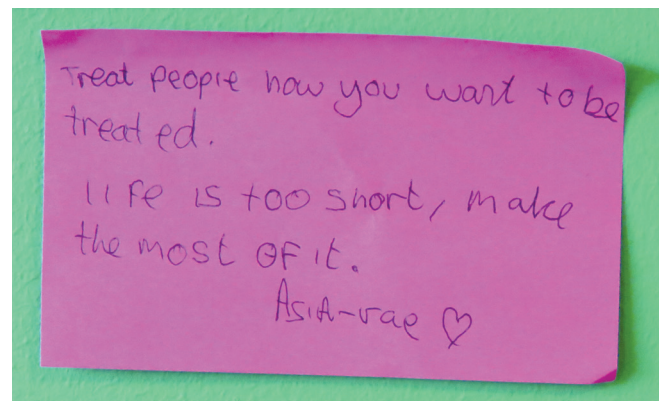 Treat people how you want to be
treated.
life is too short, make
the most of it.
Asia-rae ♡